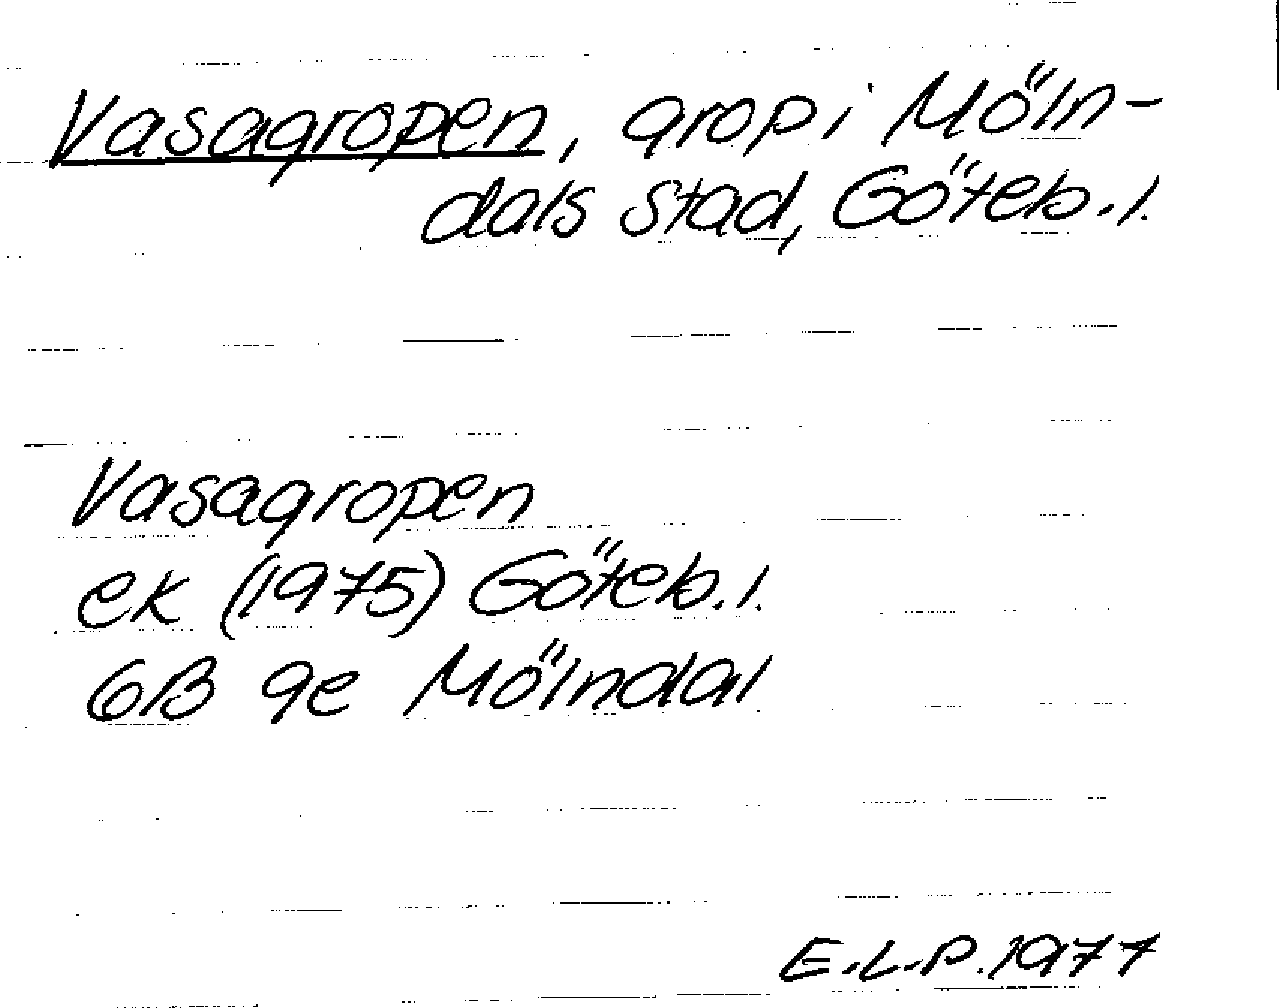 Vasagropen, grop i Möln-
dals stad, Göteb. l.
Vasagropen
ek (1975) Göteb. l.
6B 9e Mölndal
E.L.P. 1977